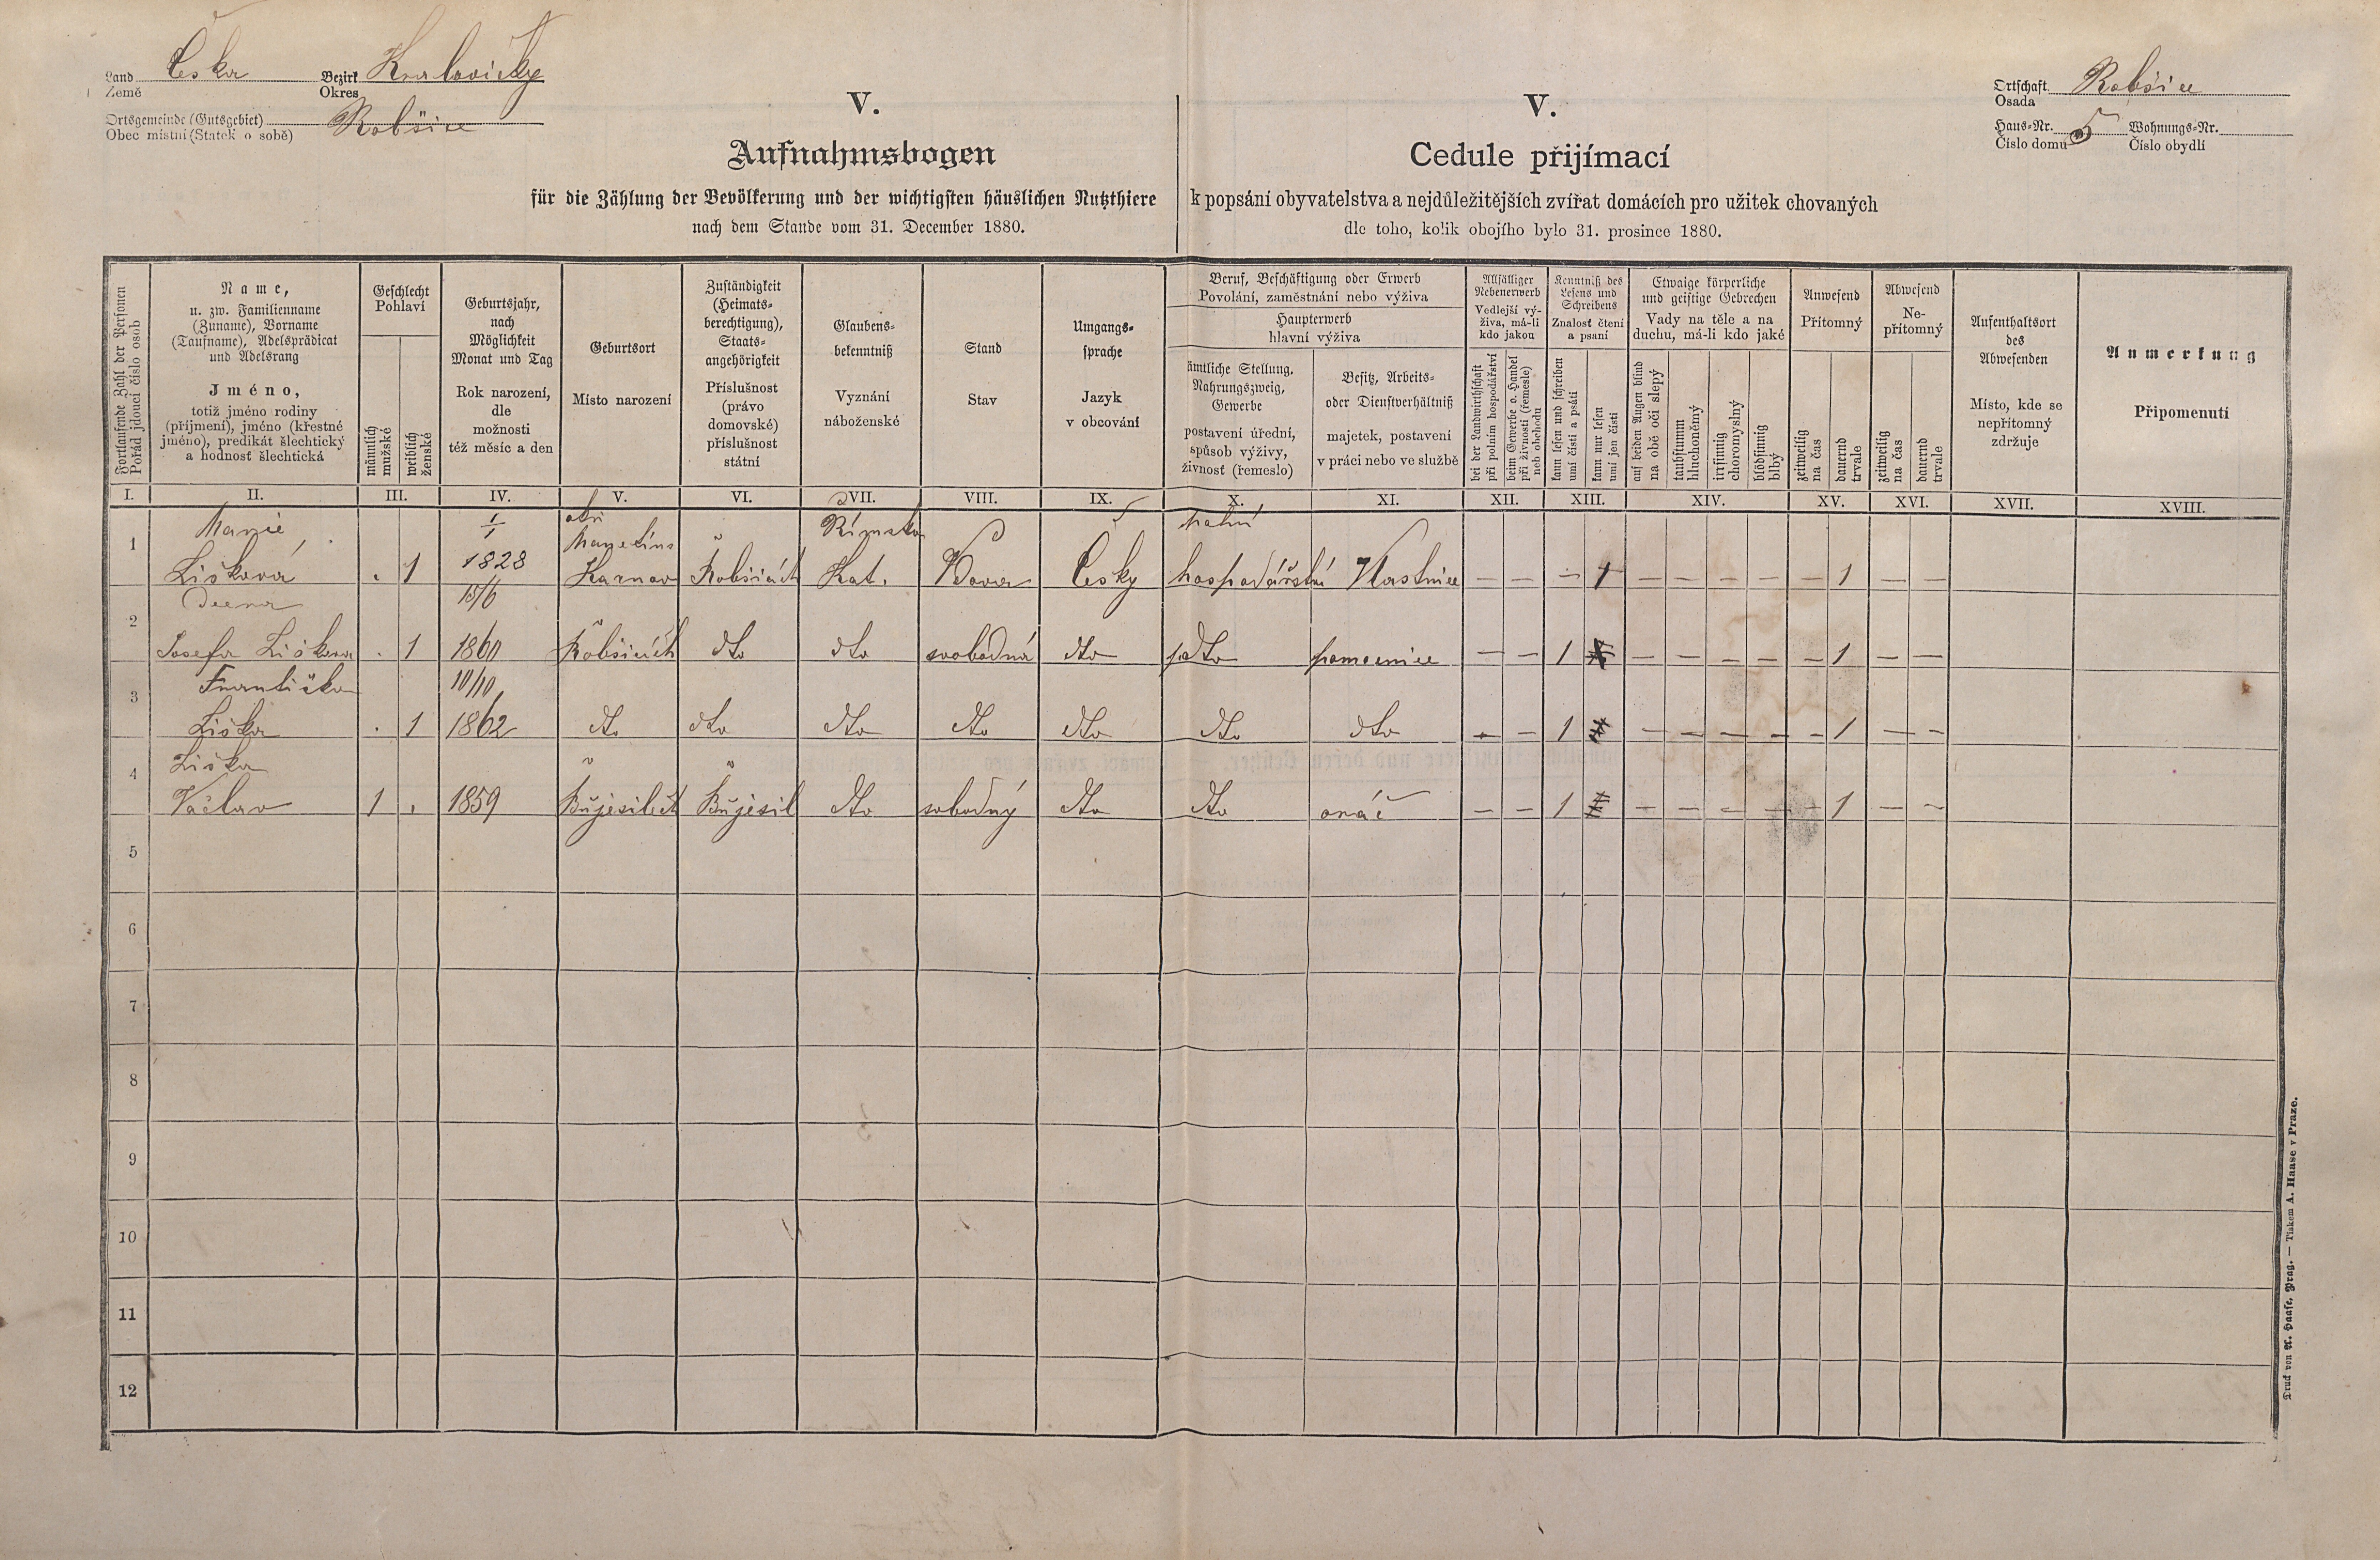 Land Česka Bezirk Kralovicky
Země Okres
Ortsgemeinde (Gutsgebiet) Robšice
Obec místní (Statek o sobě)
V.
Aufnahmsbogen
für die Zählung der Bevölkerung und der wichtigsten häuslichen Nutzthiere
nach dem Stande vom 31. December 1880.
V.
Cedule přijímací
k popsání obyvatelstva a nejdůležitějších zvířat domácích pro užitek chovaných
dle toho, kolik obojího bylo 31. prosince 1880.
Ortschaft Robšice
Osada
Haus-Nr. 5 Wohnungs-Nr.
Číslo domu Číslo obydlí
Fortlaufende Zahl der Personen
Pořád jdoucí číslo osob
Name,
u. zw. Familienname
(Zuname), Vorname
(Taufname), Adelsprädicat
und Adelsrang
Jméno,
totiž jméno rodiny
(příjmení), jméno (křestné
jméno), predikát šlechtický
a hodnost šlechtická
Geschlecht
Pohlaví
männlich
mužské
weiblich
ženské
Geburtsjahr,
nach
Möglichkeit
Monat und Tag
Rok narození,
dle
možnosti
též měsíc a den
Geburtsort
Místo narození
Zuständigkeit
(Heimats-
berechtigung),
Staats-
angehörigkeit
Příslušnost
(právo
domovské)
příslušnost
státní
Glaubens-
bekenntniß
Vyznání
náboženské
Stand
Stav
Umgangs-
sprache
Jazyk
v obcování
Beruf, Beschäftigung oder Erwerb
Povolání, zaměstnání nebo výživa
Haupterwerb
hlavní výživa
ämtliche Stellung,
Nahrungszweig,
Gewerbe
postavení úřední,
spůsob výživy,
živnost (řemeslo)
Besitz, Arbeits-
oder Dienstverhältniß
majetek, postavení
v práci nebo ve službě
Allfälliger
Nebenerwerb
Vedlejší vý-
živa, má-li
kdo jakou
bei der Landwirthschaft
při polním hospodářství
beim Gewerbe o. Handel
při živnosti (řemesle)
neb obchodu
Kenntniß des
Lesens und
Schreibens
Znalost čtení
a psaní
kann lesen und schreiben
umí čísti a psáti
kann nur lesen
umí jen čísti
Etwaige körperliche
und geistige Gebrechen
Vady na těle a na
duchu, má-li kdo jaké
auf beiden Augen blind
na obě oči slepý
taubstumm
hluchoněmý
irrsinnig
choromyslný
blödsinnig
blbý
Anwesend
Přítomný
zeitweilig
na čas
dauernd
trvale
Abwesend
Ne-
přítomný
zeitweilig
na čas
dauernd
trvale
Aufenthaltsort
des
Abwesenden
Místo, kde se
nepřítomný
zdržuje
Anmerkung
Připomenutí
I. II. III. IV. V. VI. VII. VIII. IX. X. XI. XII. XIII. XIV. XV. XVI. XVII. XVIII.
Marie 1/1 Římsko polní
1 Lišková . 1 1828 Robšicích Kat. Vdova Česky hospodářství Vlastnice — — — 1 — — — — — 1 — —
Dcera 15/6
2 Josefa Liškova . 1 1860 Robšicích dto dto svobodná dto dto pomocnice — — 1 — — — — — 1 — —
Františka 10/10
3 Liška . 1 1862 dto dto dto dto dto dto dto — — 1 — — — — — 1 — —
Liška
4 Václav 1 . 1859 Bujesilech Bujesil dto sobodný dto dto oráč — — 1 — — — — — 1 — —
5
6
7
8
9
10
11
12
Druck von A. Haase, Prag. — Tiskem A. Haase v Praze.